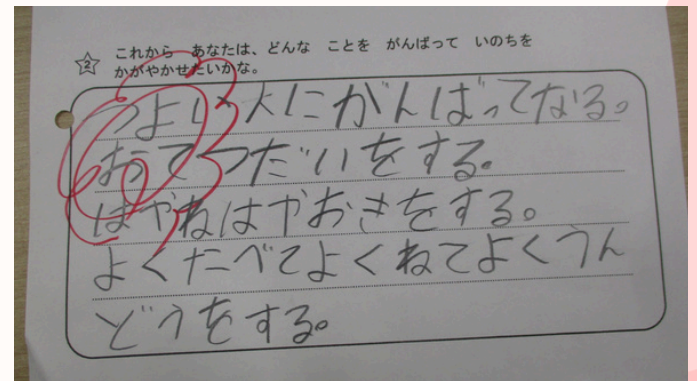 2 これから あなたは、どんな ことを がんばって いのちを
かがやかせたいかな。
つよい人にがんばってなる。
おてつだいをする。
はやねはやおきをする。
よくたべてよくねてよくうん
どうをする。